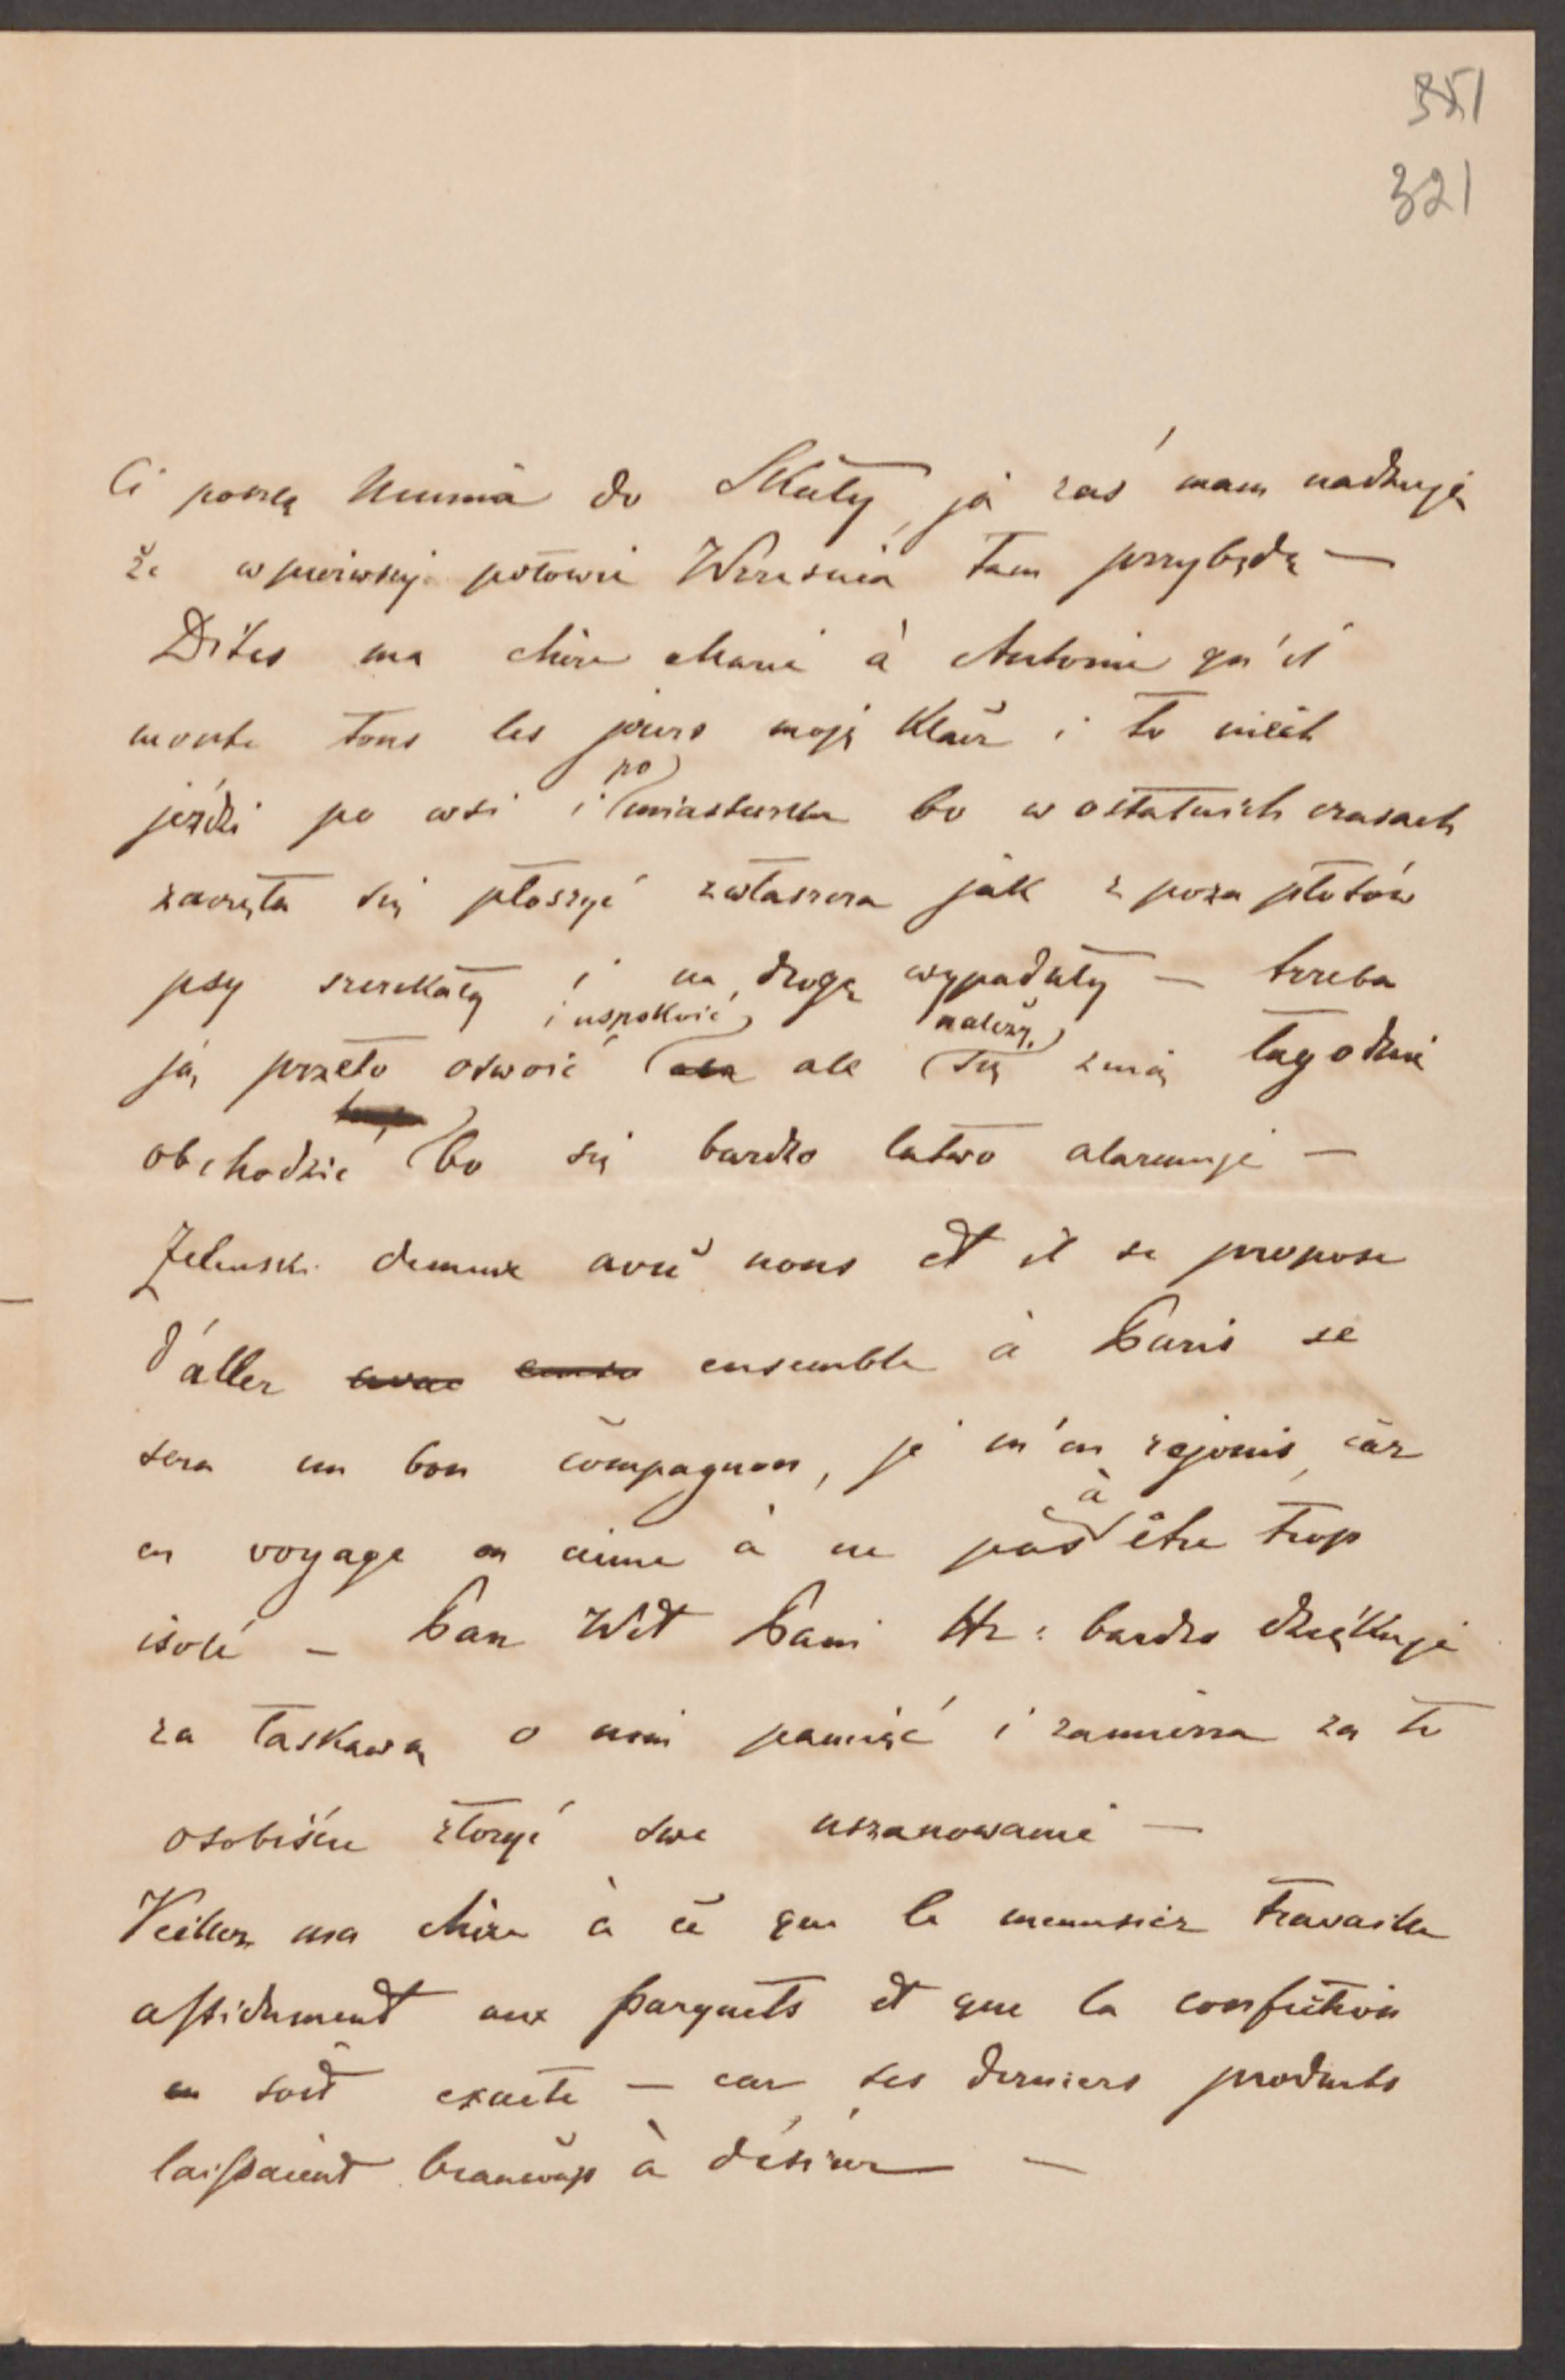 351
321
Ci poszlę Numma do Skały, ja zaś mam nadzieję
że w pierwszej połowie Września tam przybędę —
Dites ma chère Marie à Antoine qu'il
monte tous les jours moją Klacz i to niech
jeździ po wsi i po miasteczku bo w ostatnich czasach
zaczęła się płoszyć zwłaszcza jak z poza płotów
psy szczekały i na drogę wypadały — trzeba
ją przeto oswoić i uspokoić ale należy się z nią łagodnie
obchodzić bo się bardzo łatwo alarmuje —
Zelenski demeure avec nous et il se propose
d'aller avec ense ensemble à Paris se
sera un bon compagnon, je m'en rejouis car
en voyage on aime à ne pas à être trop
isolé — Pan Wit Pani Hr: bardzo dziękuje
za łaskawą o nim pamięć i zamierza za to
osobiście złożyć swe uszanowanie —
Veillez ma chère à ce que le menusier travaille
assidument aux parquets et que la confection
en soit exacte — car ses derniers produits
laissaient beaucoup à désirer —